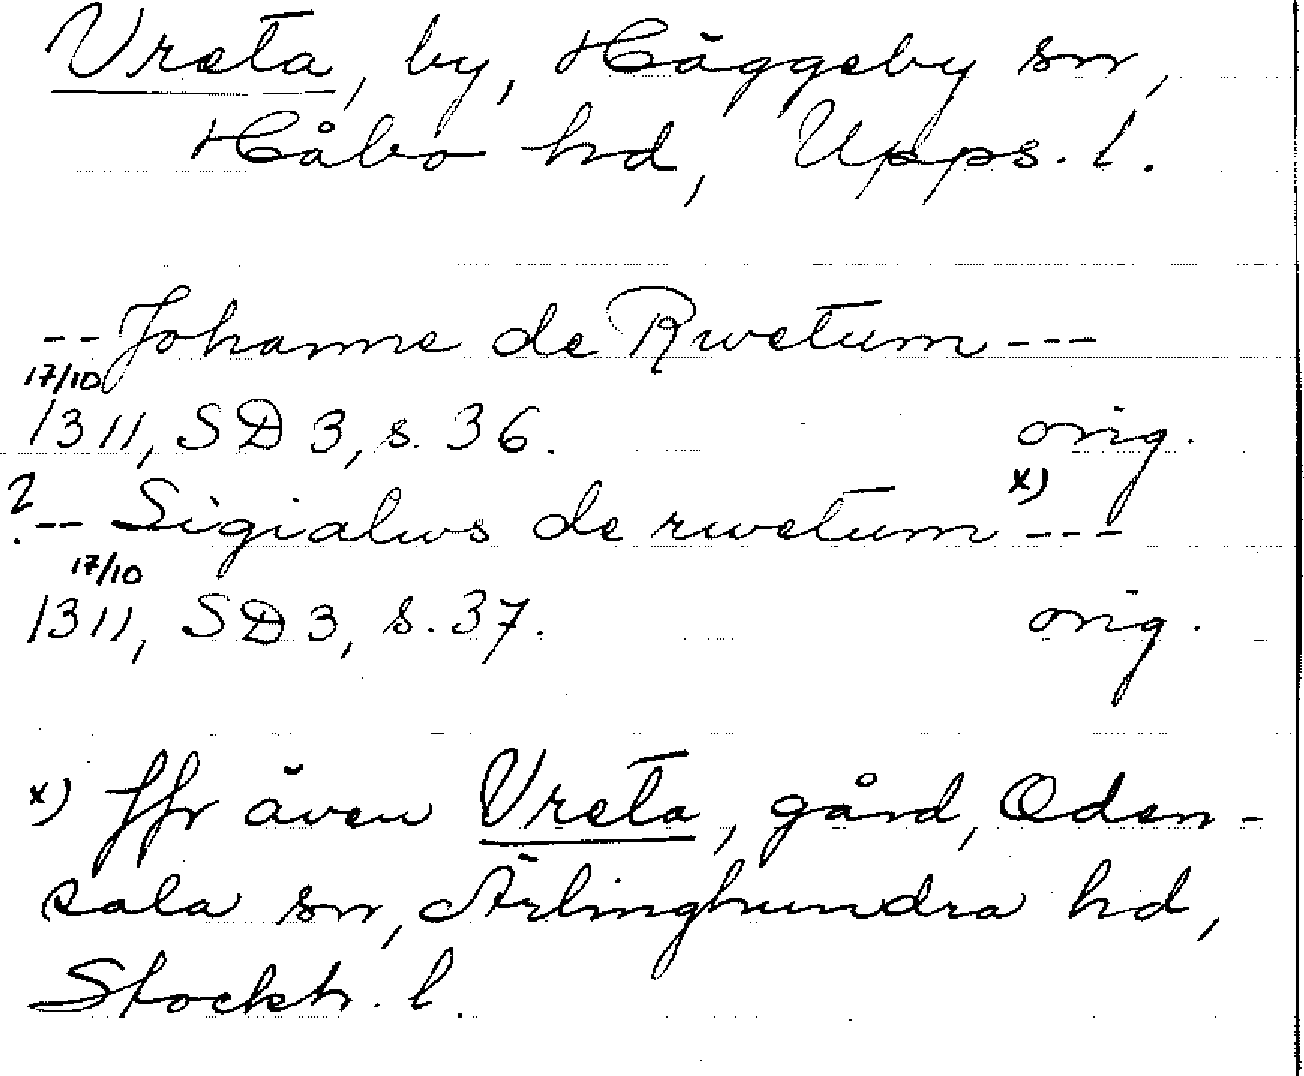 Vreta, by, Häggeby sn,
Håbo hd, Upps. l.
-- Johanne de Rwetum ---
17/10
1311, SD 3, s. 36. orig.
? -- Sigialws de rwetum x) ---
17/10
1311, SD 3, s. 37. orig.
x) Jfr även Vreta, gård, Oden-
sala sn, Ärlinghundra hd,
Stockh. l.